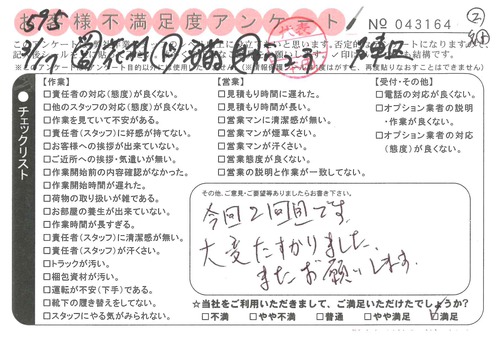 595
お客様不満足度アンケート
No 043164
②
【作業】
□責任者の対応(態度)が良くない。
□他のスタッフの対応(態度)が良くない。
□作業を見ていて不安がある。
□責任者(スタッフ)に好感が持てない。
□お客様への挨拶が出来ていない。
□ご近所への挨拶・気遣いが無い。
□作業開始前の内容確認がなかった。
□作業開始時間が遅れた。
□荷物の取り扱いが雑である。
□お部屋の養生が出来ていない。
□作業時間が長すぎる。
□責任者(スタッフ)に清潔感が無い。
□責任者(スタッフ)が汗くさい。
□トラックが汚い。
□梱包資材が汚い。
□運転が不安(下手)である。
□靴下の履き替えをしてない。
□スタッフにやる気がみられない。
【営業】
□見積もり時間に遅れた。
□見積もり時間が長い。
□営業マンに清潔感が無い。
□営業マンが煙草くさい。
□営業マンが汗くさい。
□営業態度が良くない。
□営業の説明と作業が一致してない。
【受付・その他】
□電話の対応が良くない。
□オプション業者の説明
・作業が良くない。
□オプション業者の対応
(態度)が良くない。
チェックリスト
その他、ご意見・ご要望等ありましたらお書き下さい。
今回2回目です。
大変たすかりました、
またお願いします。
☆当社をご利用いただきまして、ご満足いただけたでしょうか?
□不満 □やや不満 □普通 □やや満足 □満足